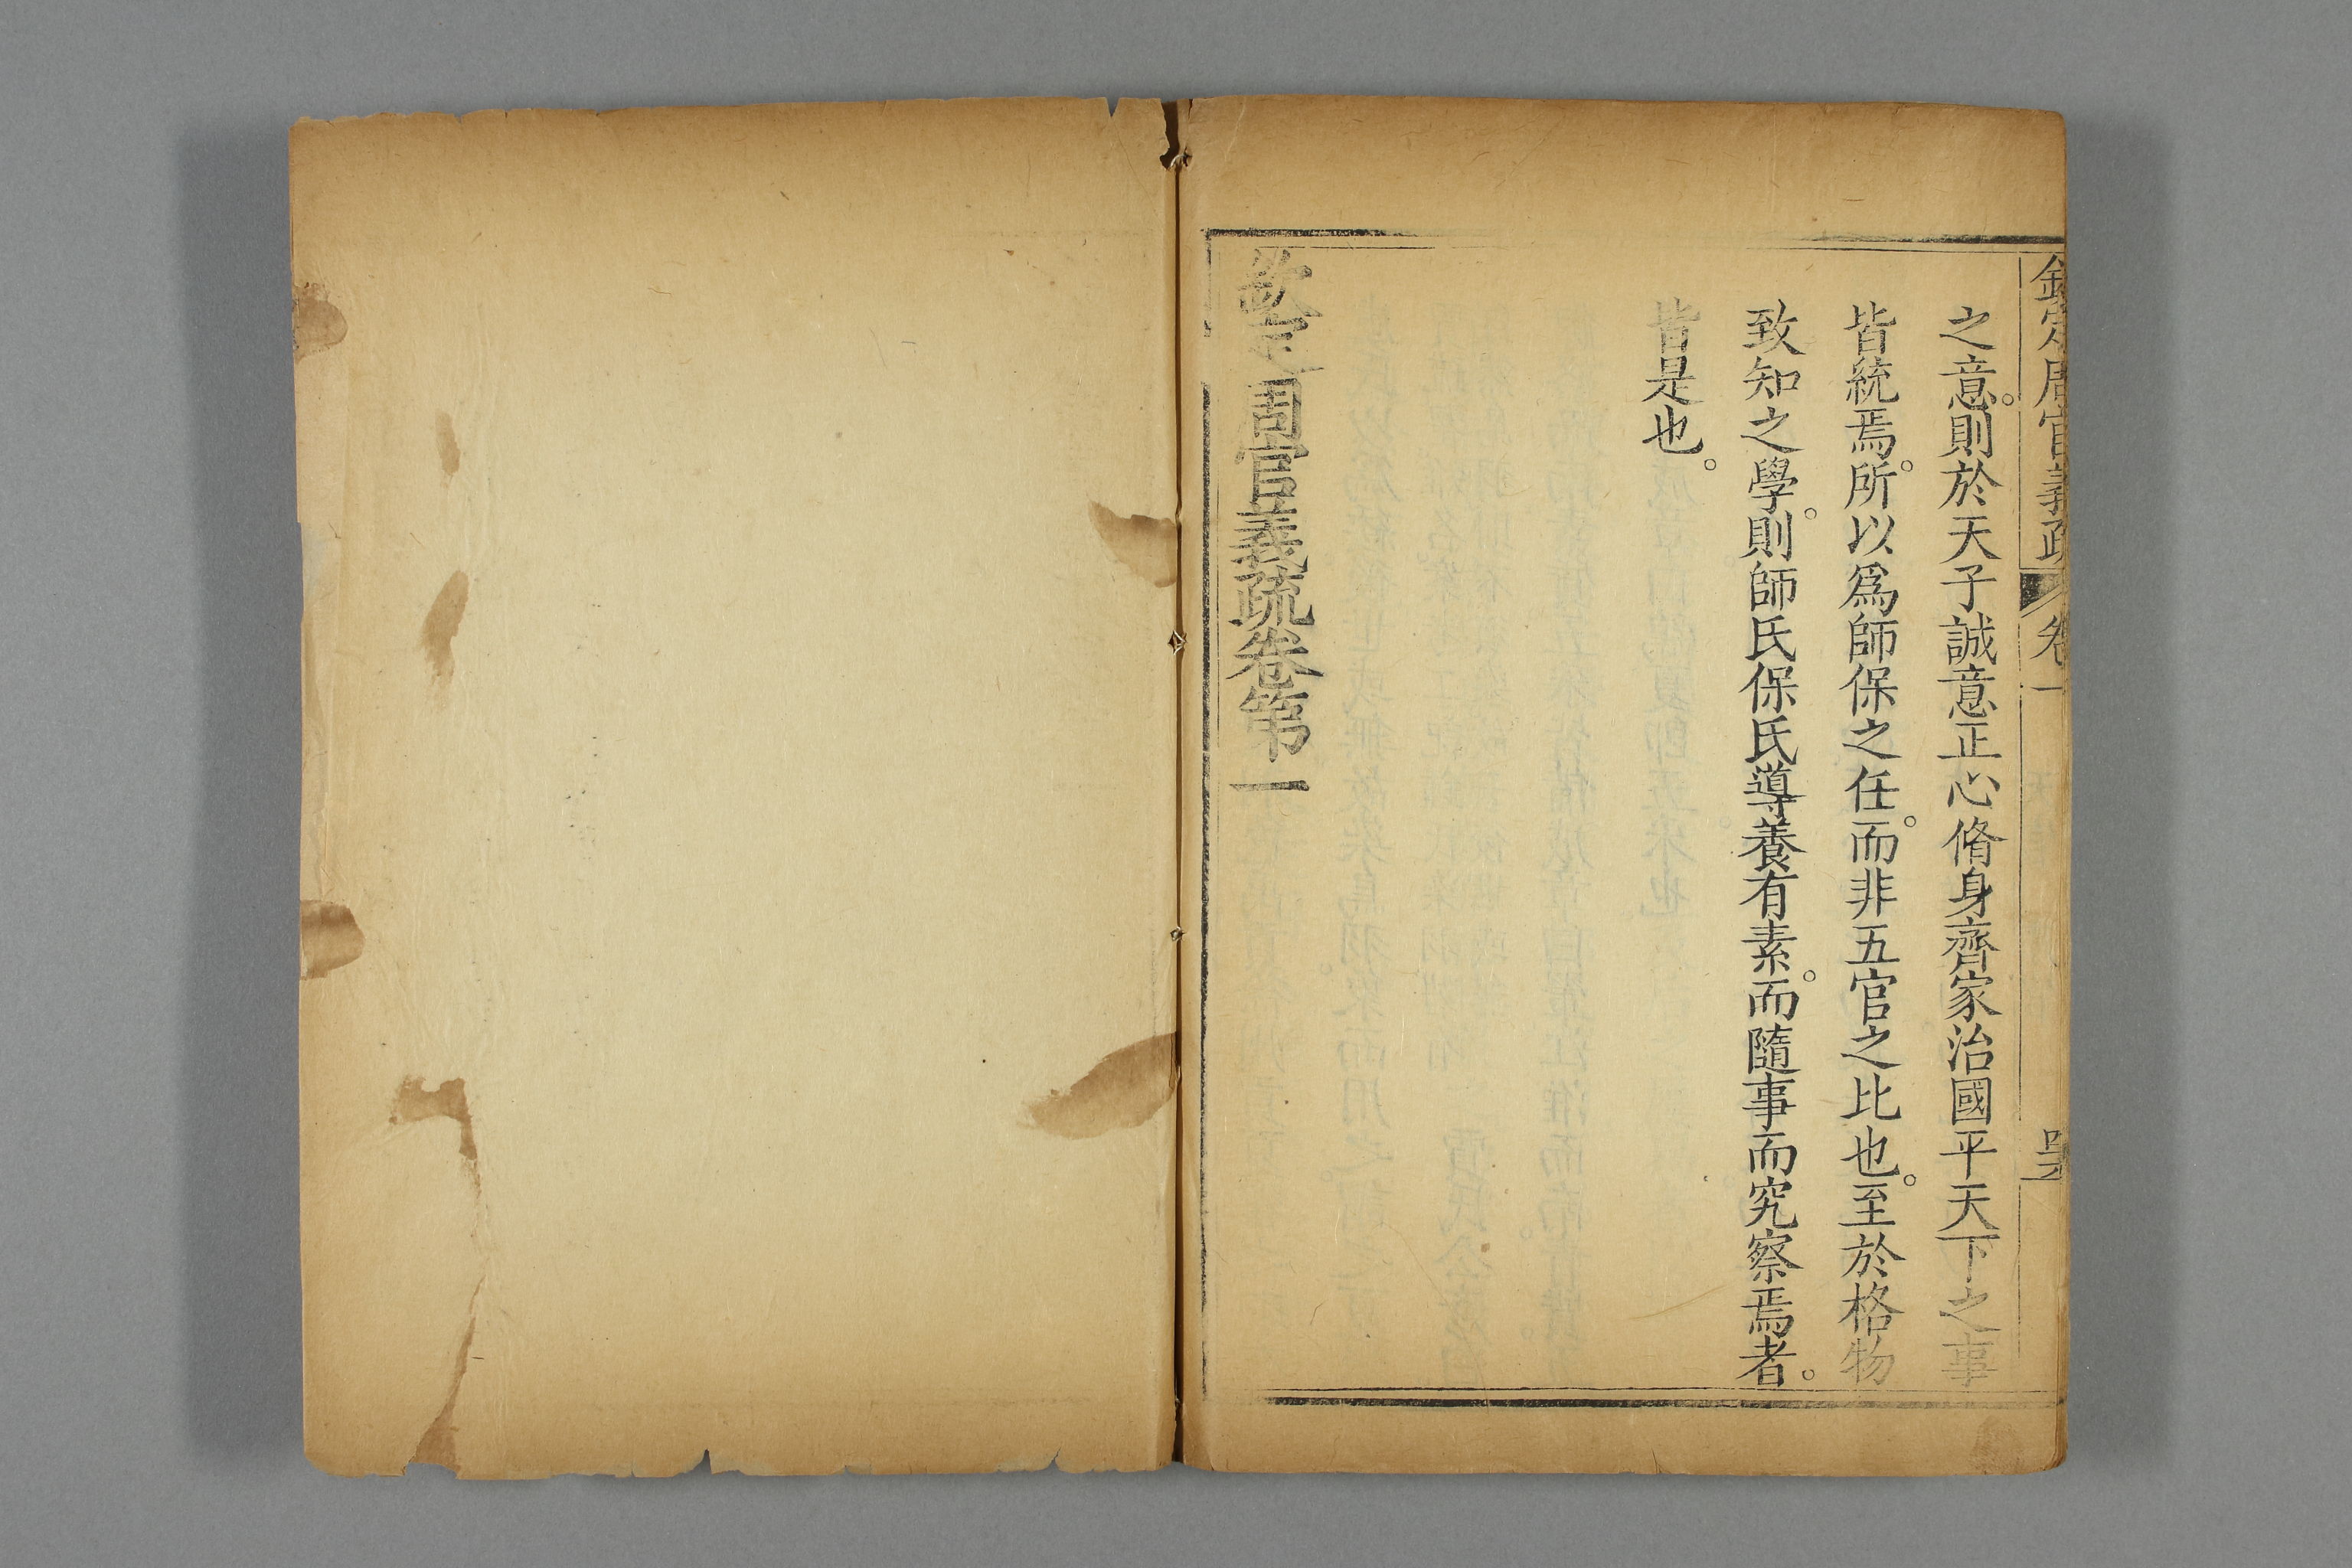 欽定周官義疏 卷一
之意。則於天子誠意正心脩身齊家治國平天下之事
皆統焉。所以爲師保之任。而非五官之比也。至於格物
致知之學。則師氏保氏導養有素。而隨事而究察焉者。
皆是也。
欽定周官義疏卷第一